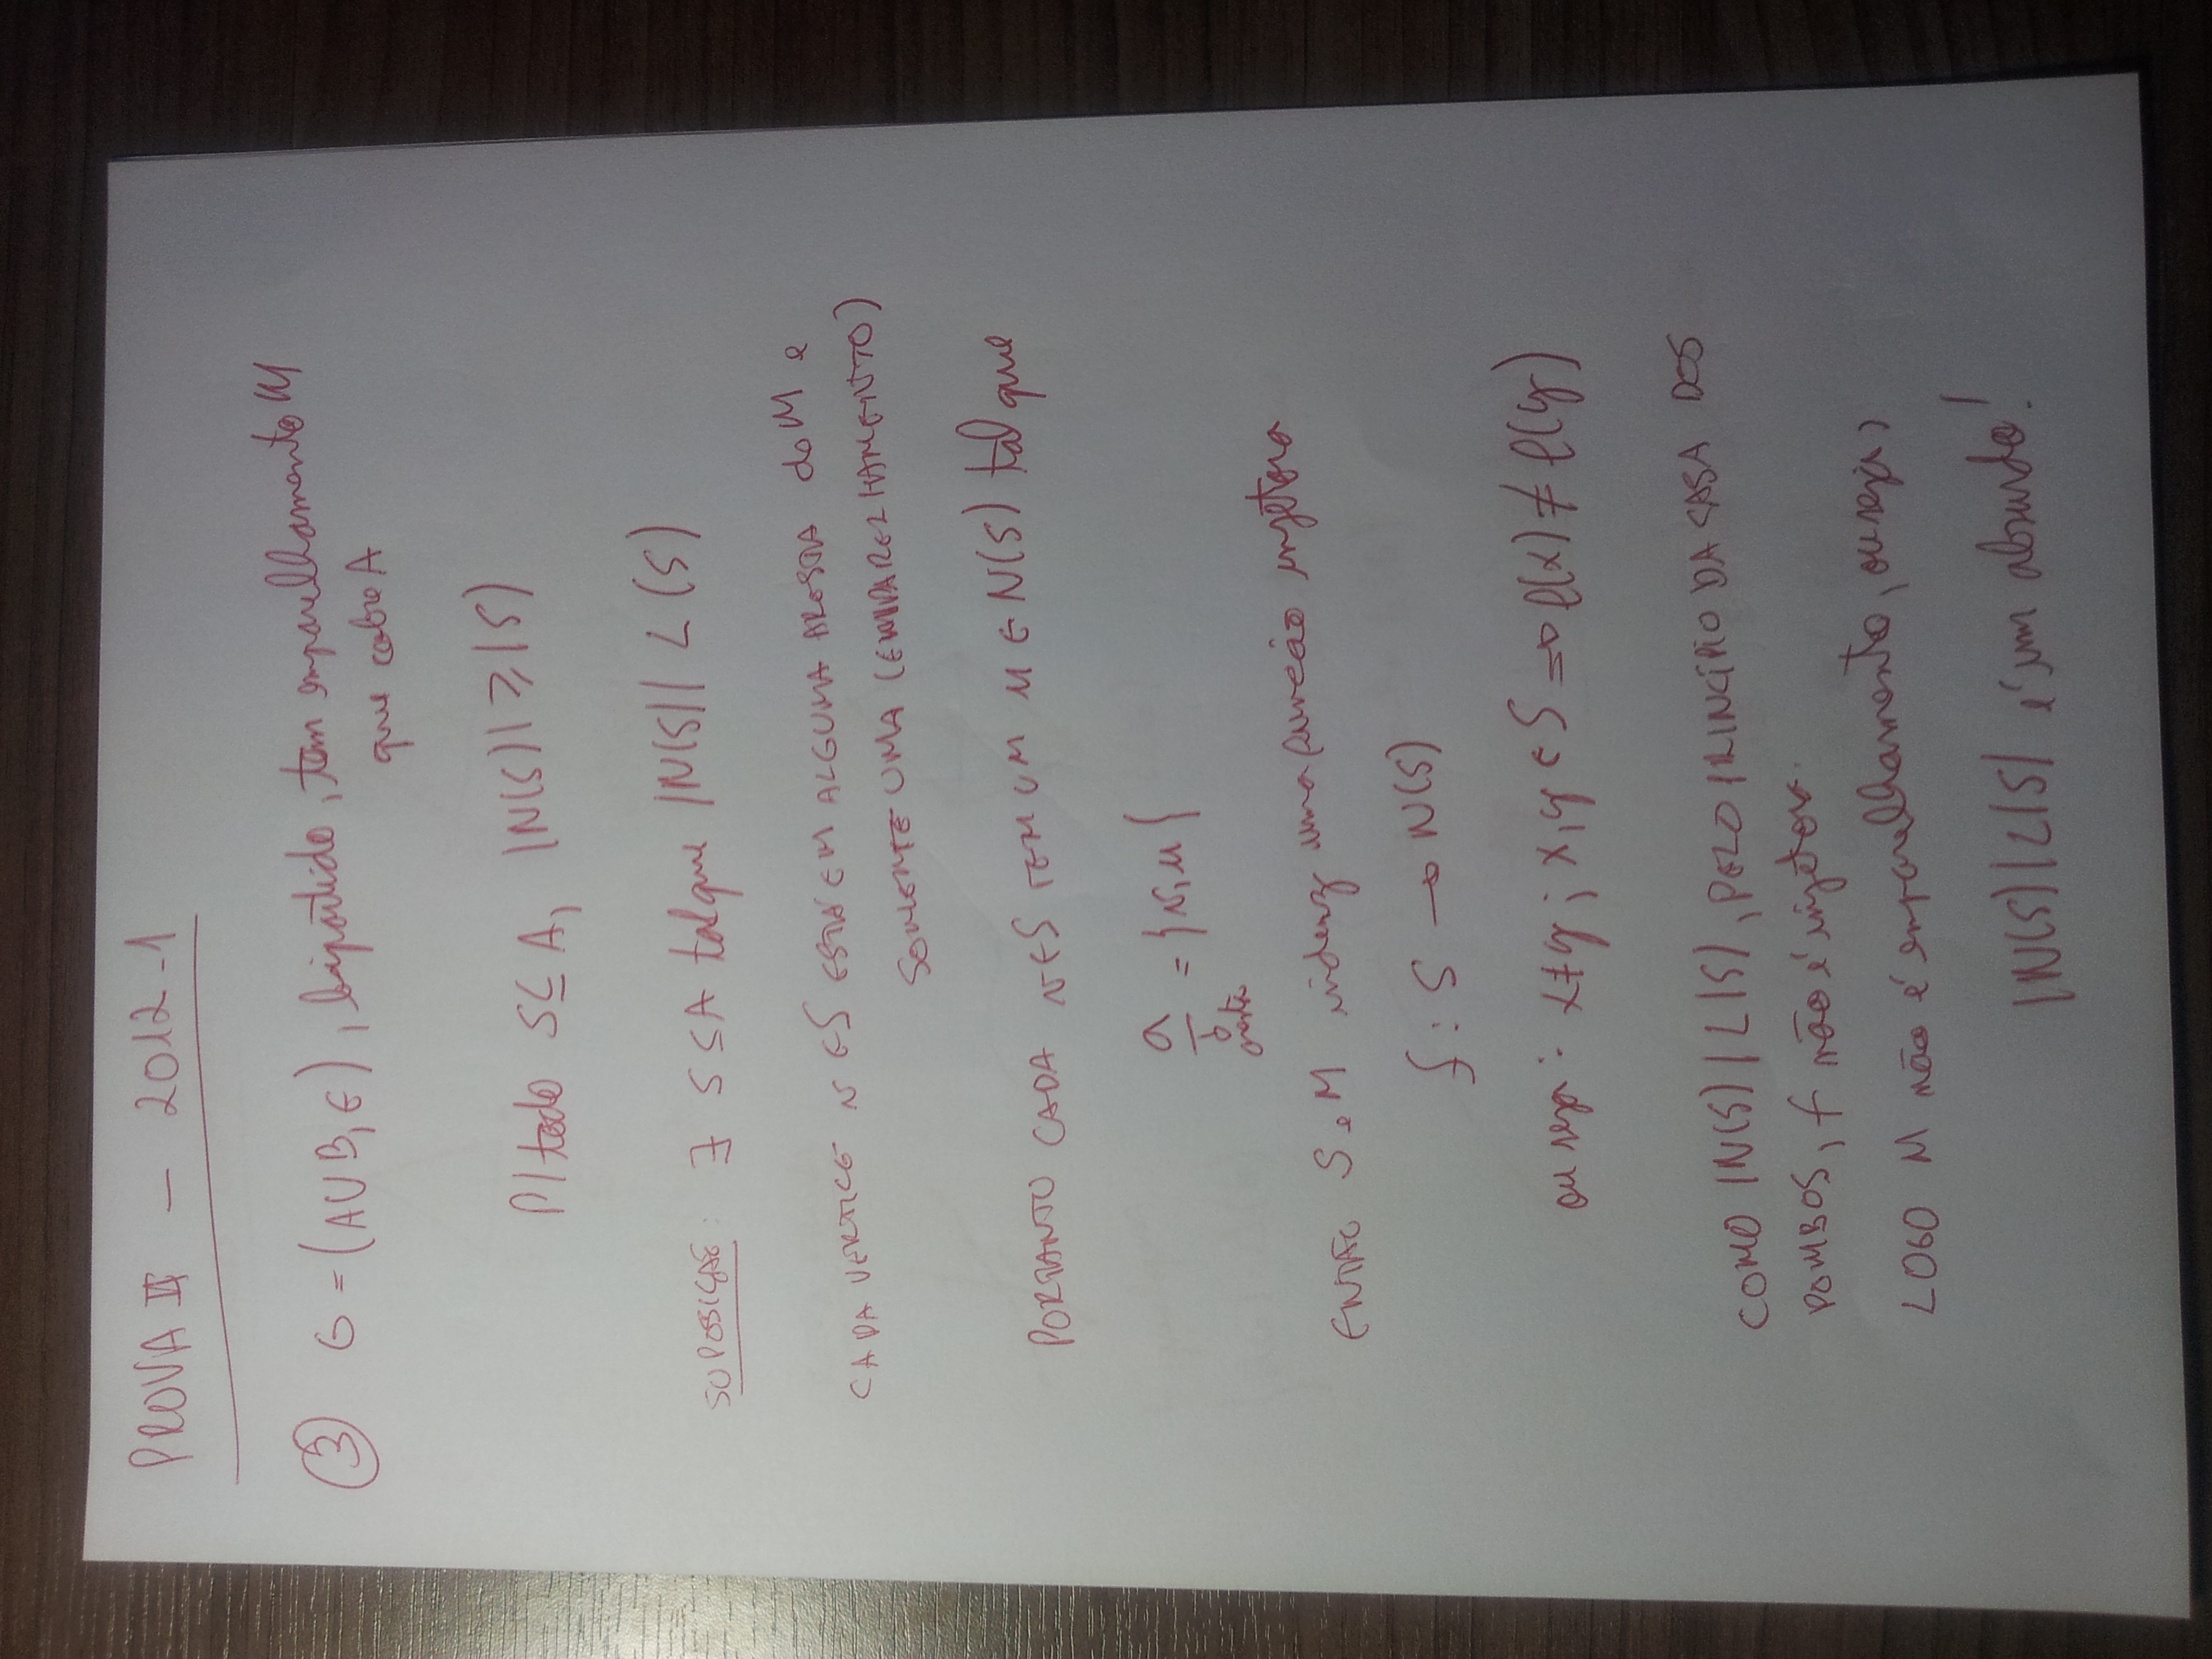 PROVA II — 2012-1
③ G = (AUB, E), bipártido, tem emparelhamento M
que cobre A
P/ todo S ⊆ A, |N(S)| ≥ |S|
SUPOSIÇÃO: ∃ S ⊆ A tal que |N(S)| < |S|
CADA VERTICE v ∈ S ESTÁ EM ALGUMA ARESTA do M e
SOMENTE UMA (EMPARELHAMENTO)
PORTANTO CADA v ∈ S TEM UM u ∈ N(S) tal que
a = {v, u}
aresta
ENTÃO S e M induz uma função injetora
f : S → N(S)
ou seja: x ≠ y ; x, y ∈ S ⇒ f(x) ≠ f(y)
COMO |N(S)| < |S|, PELO PRINCÍPIO DA CASA DOS
POMBOS, f não é injetora.
LOGO M não é emparelhamento, ou seja,
|N(S)| < |S| é um absurdo!